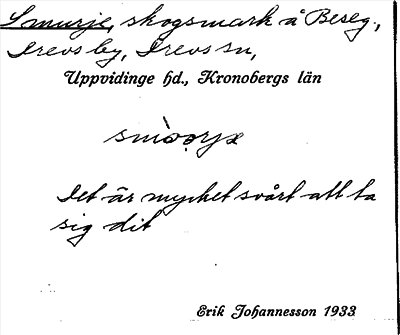 Smurje, skogsmark å Beseg,
Drevs by, Drevs sn,
Uppvidinge hd., Kronobergs län
smὼorjə
Det är mycket svårt att ta
sig dit
Erik Johannesson 1933